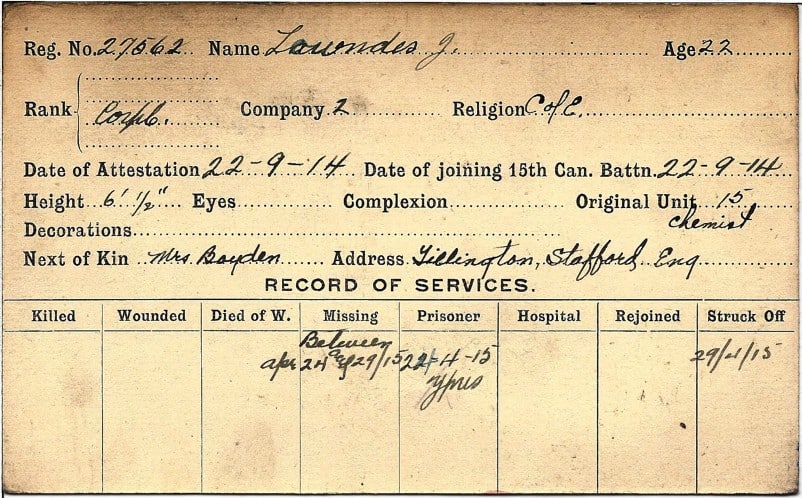 Reg. No. 27562 Name Lowndes J. Age 22
Rank Corpl. Company 2 Religion C of E.
Date of Attestation 22-9-14 Date of joining 15th Can. Battn. 22-9-14
Height 6' ½" Eyes Complexion Original Unit 15
chemist
Decorations
Next of Kin Mrs. Boyden Address Tillington, Stafford, Eng
RECORD OF SERVICES.
Killed Wounded Died of W. Missing Prisoner Hospital Rejoined Struck Off
Between
Apr 24 & 29/15 22-4-15 29/4/15
Ypres